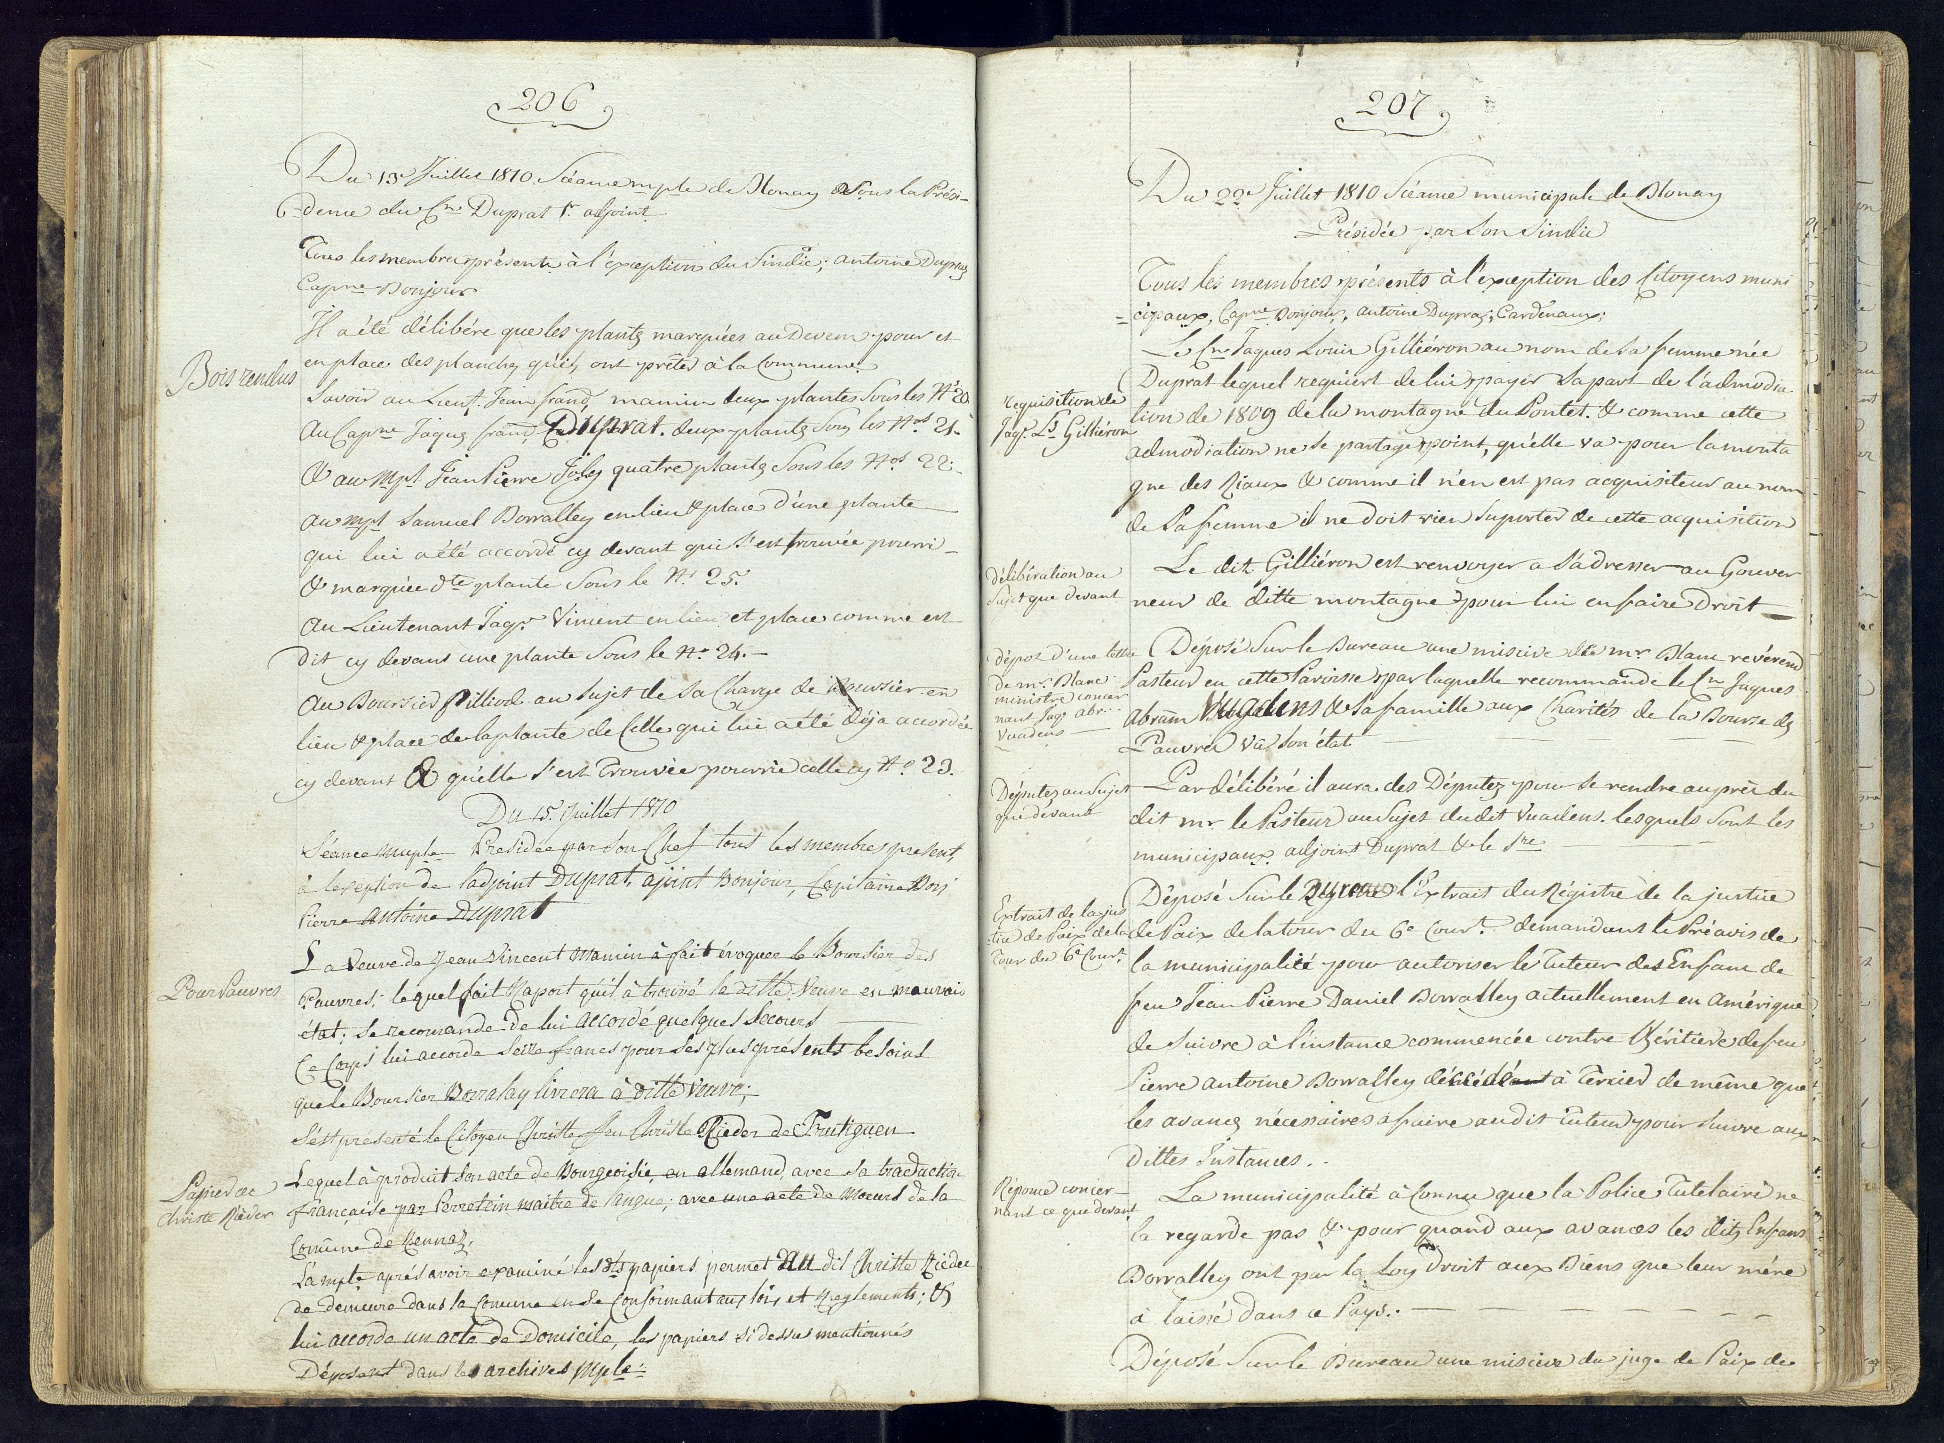 206
Du 13e Juillet 1810 Séance mple de Blonay Sous la Prési-
dence du Cn Duprat 1r adjoint
Tous les membres présents à l'exception du Sindic; antoine Dupraz
Capne Bonjour
Il a été délibéré que les plantes marquées au Devens pour et
en place des planches qu'ils ont prêtés à la Commune.
Bois rendus
Savoir au Lieut. Jean frand mamin deux plantes Sous les No 20.
Au Capne Jaques frand Duprat. deux plantes Sous les Nos 21.
& au mpl Jean Pierre Joly quatre plantes Sous les Nos 22.
au mpl Samuel Borralley en lieu & place d'une plante
qui lui a été accordé cy devant qui s'est trouvée pourri
& marquée dte plante Sous le No 25.
Au Lieutenant Jaqs Vincent en lieu et place comme est
dit cy devant une plante Sous le No 24.
Au Boursier Pilliod au Sujet de Sa Charge de Boursier en
lieu & place de la plante de Celle qui lui a été déja accordée
cy devant & quelle s'est Trouvée pourrie celle cy No 23.
Du 15. Juillet 1810
Séance muple Presidée par son Chef tous les membres present,
à lexeption de ladjoint Duprat, ajoint Bonjour, Capitaine Bonj
Pierre Antoine Duprat
La Veuve de Jean Vincent Mamin à fait évoquer le Boursier des
Pour Pauvres
Pauvres; lequel fait Raport quil à trouvé la ditte Veuve en mauvais
état; se recomande de lui accordé quelques secours
Ce Corps lui accorde Seize francs pour ses plus présents besoins
que le Boursier Borraley livrera à ditte Veuve;
S'est présenté le Citoyen Christe feu Christe Rieder de Frutiguen
Papier de
Christe Rieder
Lequel à produit son acte de Bourgeoisie, en allemand, avec sa traduction
française par Perretein maitre de langue; avec une acte de Moeurs de la
Comune de Rennaz;
La mple aprés avoir examiné les dts papiers permet Au dit Christe Rieder
de demeure dans la Comune en se Conformant aux loix et Reglements; &
lui accorde un acte de Domicile, les papiers si dessus mentionnés
Déposent dans les archives mple
207
Du 22e Juillet 1810 Séance municipale de Blonay
Présidée par Son Sindic
Tous les membres présents à l'exception des Citoyens muni
cipaux, Capne Bonjour, antoine Dupraz, Cardenaux;
Le Cn Jaques Louis Gilliéron au nom de Sa femme née
Duprat lequel requiert de lui payer Sa part de l'admodia-
requisition de
Jaqs Ls Gilliéron
tion de 1809 de la montagne du Pontet. & comme cette
admodiation ne se partage point, qu'elle va pour la monta
gne des Riaux & comme il n'en est pas acquisiteur au nom
de Sa femme il ne doit rien Suporter de cette acquisition
délibération au
Sujet que devant
Le dit Gilliéron est renvoyer a S'adresser au Gouver
neur de ditte montagne pour lui en faire Droit
dépot d'une lettre
de mr. Blanc
ministre concer
nant Jaqs Abr..
Vuadens
Déposé Sur le Bureau une missive de mr Blanc revérend
Pasteur en cette Paroisse par laquelle recommande le Cn Jaques
Abram Vuadens & Sa famille aux Charités de la Bourse des
Pauvres Vû Son état
Députez au Sujet
que devant
Par délibéré il aura des Députez pour se rendre auprès du
dit mr. le Pasteur au Sujet du dit Vuadens. lesquels Sont les
municipaux adjoint Duprat & le Sre
Extrait de la jus
tice de Paix de la
Tour du 6e Court
Déposé Sur le Bureau l'Extrait du Régistre de la justice
de Paix de la tour du 6e Court. demandant le Préavis de
la municipalité pour autoriser le Tuteur des Enfans de
feu Jean Pierre Daniel Borralley actuellement en Amérique
de Suivre à l'instance commencée contre l'héritiere de feu
Pierre antoine Borralley décédé à Tercier de même que
les avances nécessaires à faire au dit Tuteur pour Suivre aux
Dittes Instances..
Réponce concer-
nant ce que devant
La municipalité à Connu que la Police Tutelaire ne
la regarde pas & pour quand aux avances les dits Enfans
Borralley ont par la Loy Droit aux Biens que leur mère
à laissé dans ce Pays.
Déposé Sur le Bureau une missive du juge de Paix de